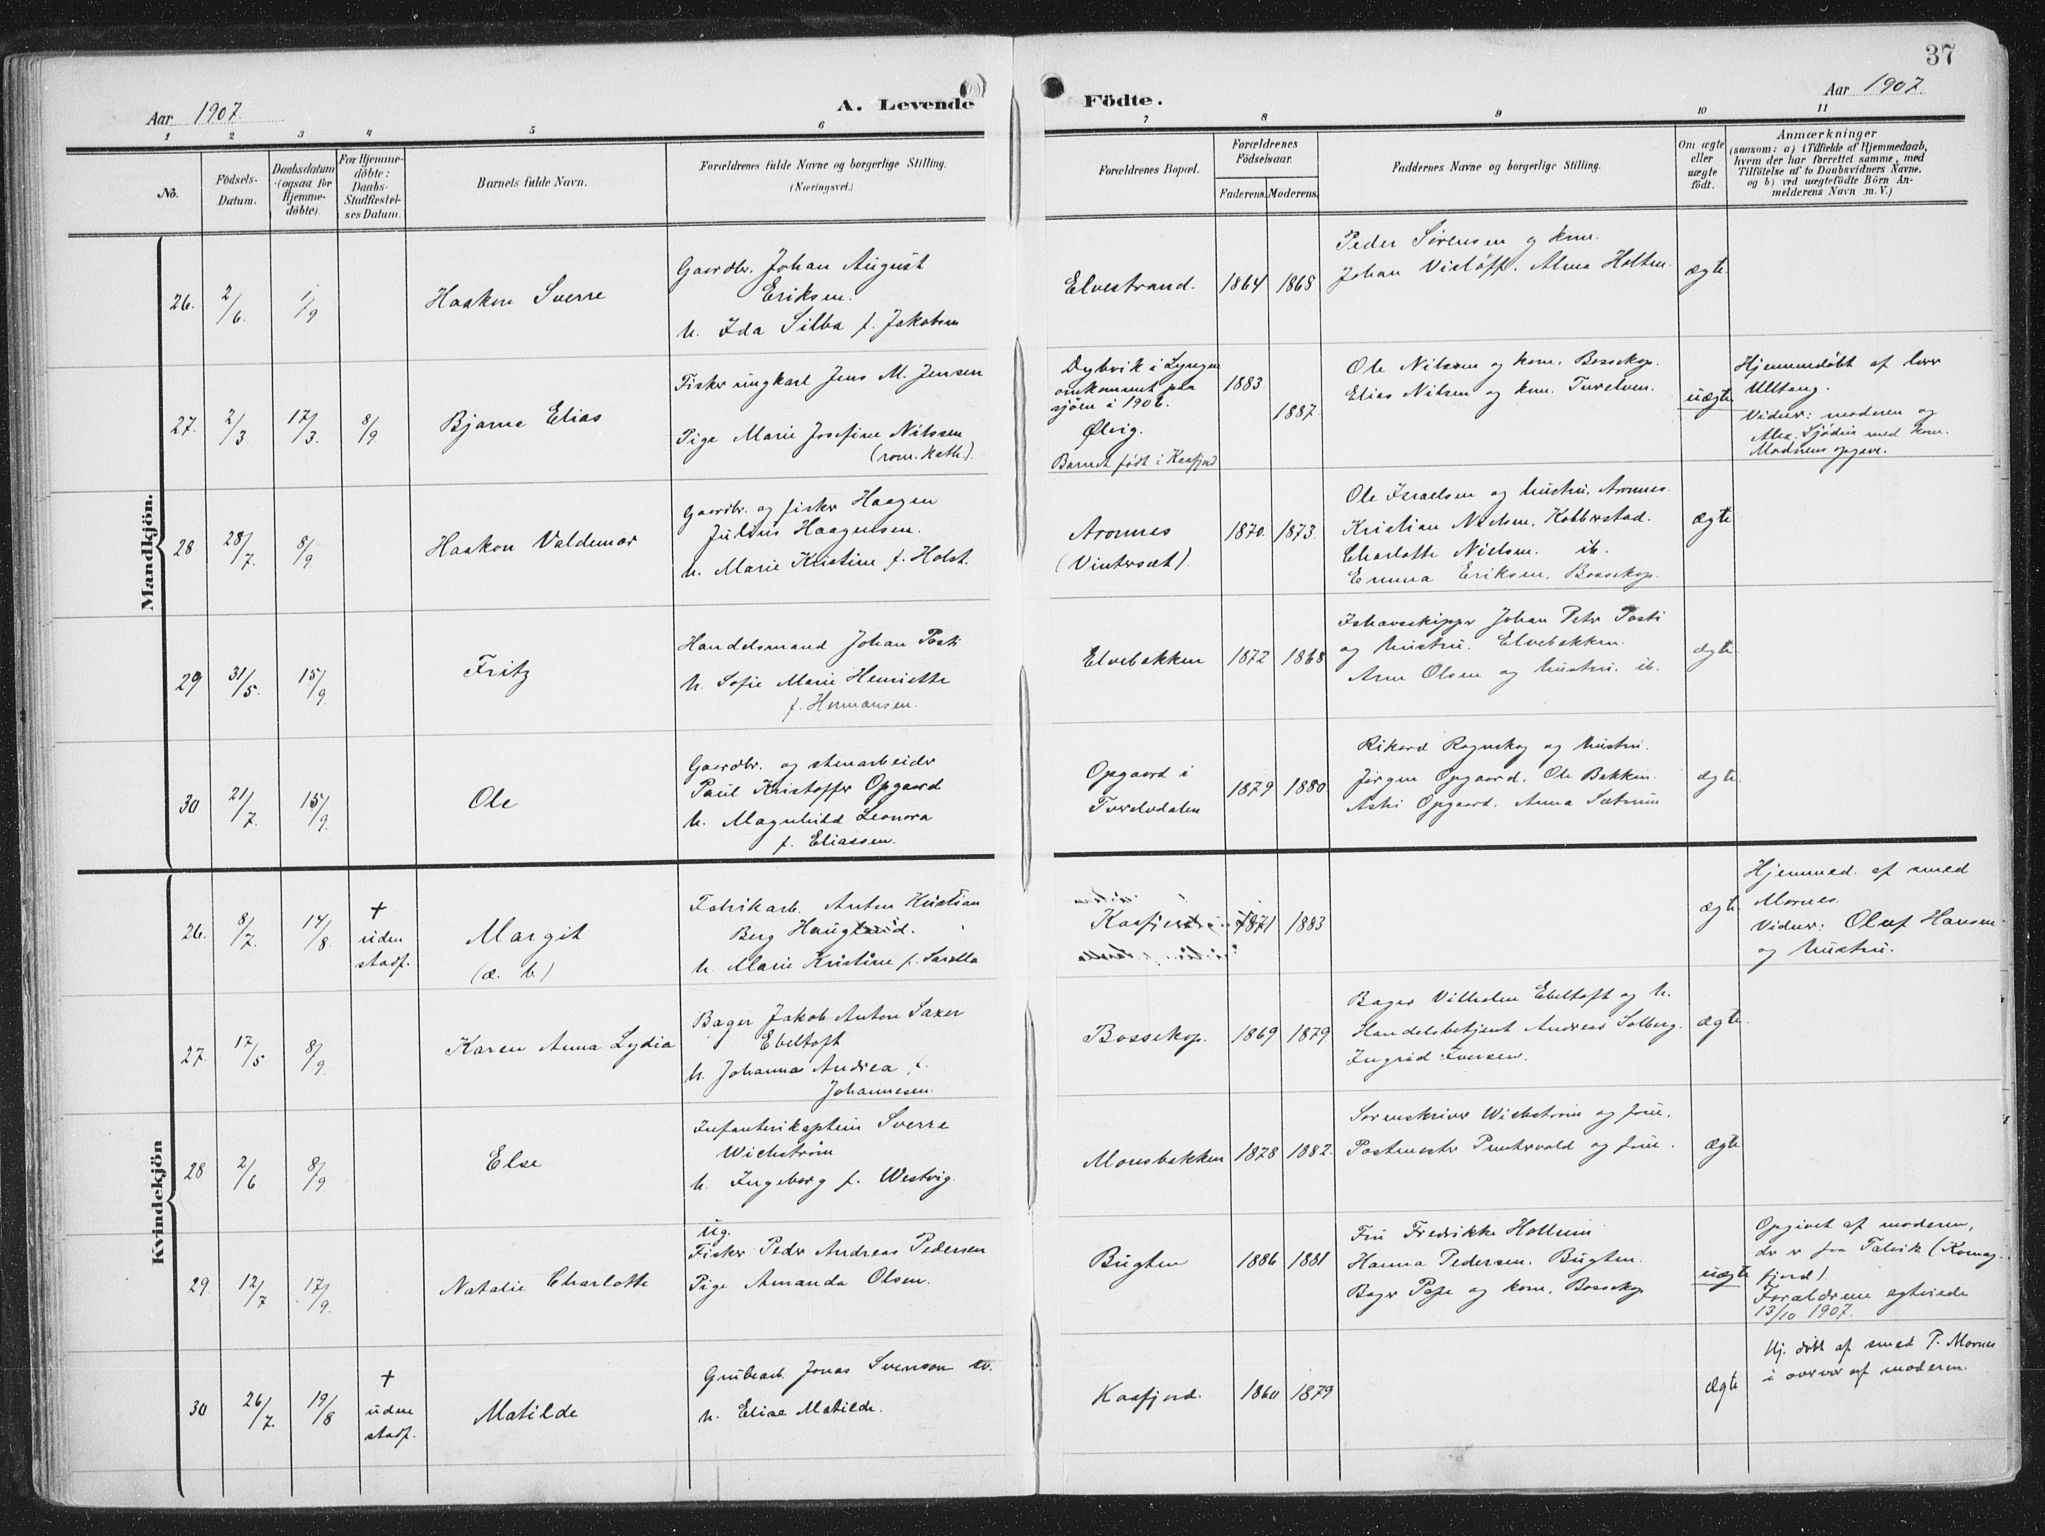 37
Aar 1907.
A. Levende Födte.
Aar 1907.
1 2 3 4 5 6 7 8 9 10 11
No.
Födsels-
Datum.
Daabsdatum
(ogsaa for
Hjemme-
döbte).
For Hjemme-
döbte:
Daabs-
Stadfæstel-
ses Datum.
Barnets fulde Navn.
Forældrenes fulde Navne og borgerlige Stilling.
(Næringsvei.)
Forældrenes Bopæl.
Forældrenes
Födselsaar.
Faderens. Moderens.
Faddernes Navne og borgerlige Stilling.
Om ægte
eller
uægte
födt.
Anmærkninger
(saasom: a) i Tilfælde af Hjemmedaab,
hvem der har forrettet samme, med
Tilföielse af to Daabsvidners Navne,
og b) ved uægtefödte Börn An-
melderens Navn m. V.)
Mandkjön.
26. 2/6. 1/9 Haakon Sverre
Gaardbr. Johan August
Eriksen.
h. Ida Silba f. Jakobsen
Elvestrand. 1864 1868
Peder Sørensen og kone.
Johan Visløff. Alma Holten.
ægte
27. 2/3. 17/3. 8/9 Bjarne Elias
Fisker ungkarl Jens M. Jensen
Pige Marie Josefine Nilssen
(rom. kath.)
Dybvik i Lyngen
omkommet paa
sjøen i 1906.
Ølvig.
Barnet født i Kaafjord
1883. 1887.
Ole Nilssen og kone. Bossekop.
Elias Nilsen og kone. Turelven.
uægte
Hjemmedøbt af lærer
Ulltang.
Vidner: moderen og
Alex. Sjødin med kone.
Modrens opgave.
28 28/7. 8/9. Haakon Valdemar
Gaardbr. og fisker Haagen
Julius Haagensen.
h. Marie Kristine f. Holst.
Aronnes
(Vintersæt).
1870. 1873.
Ole Israelsen og hustru. Aronnes.
Kristian Nielsen. Kobberstad.
Charlotte Nielsen. ib.
Emma Eriksen. Bossekop.
ægte
29 31/5. 15/9. Fritz
Handelsmand Johan Posti
h. Sofie Marie Henriette
f. Hermansen.
Elvebakken 1872 1868
Ishavsskipper Johan Peter Posti
og hustru. Elvebakken.
Arne Olsen og hustru. ib.
ægte
30 21/7. 15/9. Ole
Gaardbr. og stenarbeider
Paul Kristoffer Opgaard
h. Magnhild Leonora
f. Eliassen.
Opgaard i
Tverelvdalen
1879 1880
Rikard Rognskog og hustru.
Jørgen Opgaard. Ole Bakken.
Astri Opgaard. Anna Sætrum
ægte
Kvindekjön
26. 8/7. 14/8. +
uden
stadf.
Margit
(æ. b.)
Fabrikarb. Anton Kristian
Berg Haugland.
h. Marie Kristine f. Sarella
Kaafjord 1871 1883
ægte
Hjemmed. af smed
Mornes.
Vidner: Oluf Hansen
og hustru.
27. 17/5 8/9. Karen Anna Lydia
Bager Jakob Anton Saxer
Ebeltoft
h. Johanna Andrea f.
Johannesen.
Bossekop. 1869 1879
Bager Vilhelm Ebeltoft og h.
Handelsbetjent Andreas Solberg.
Ingrid Iversen.
ægte.
28 2/6 8/9. Else
Infanterikaptein Sverre
Wichstrøm
h. Ingeborg f. Westvig.
Monsbakken 1878 1882.
Sorenskriver Wichstrøm og frue.
Postmester Pentervold og frue.
ægte
29. 12/7 17/9. Natalie Charlotte
ug.
Fisker Peder Andreas Pedersen
Pige Amanda Olsen.
Bugten 1886 1881
Fru Fredrikke Hollum
Hanna Pedersen. Bugten.
Bager Pape og kone. Bossekop
uægte
Opgivet af moderen,
der er fra Talvik (Komag-
fjord).
Forældrene egtviede
13/10 1907.
30 26/7. 19/8 +
uden
stadf.
Matilde
Grubearb. Jonas Svenson
h. Elise Matilde.
Kaafjord. 1860 1879
ægte
Hj. døbt af smed P. Mornes
i overvær af moderen.